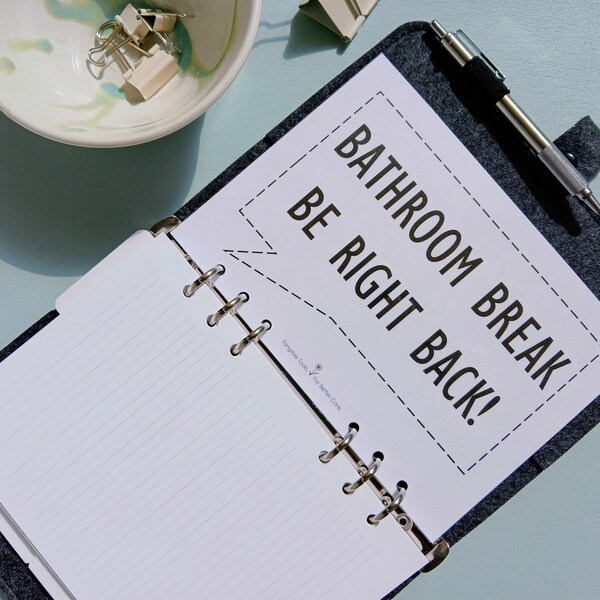 BATHROOM BREAK
BE RIGHT BACK!
Tangible Tools For Better Care